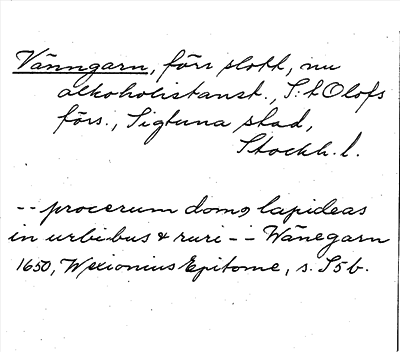 Vänngarn, förr slott, nu
alkoholistanst., S:t Olofs
förs., Sigtuna stad,
Stockh. l.
-- procerum domꝯ lapideas
in urbibus & ruri -- Wänegarn
1650, Wexionius Epitome, s. S5b.